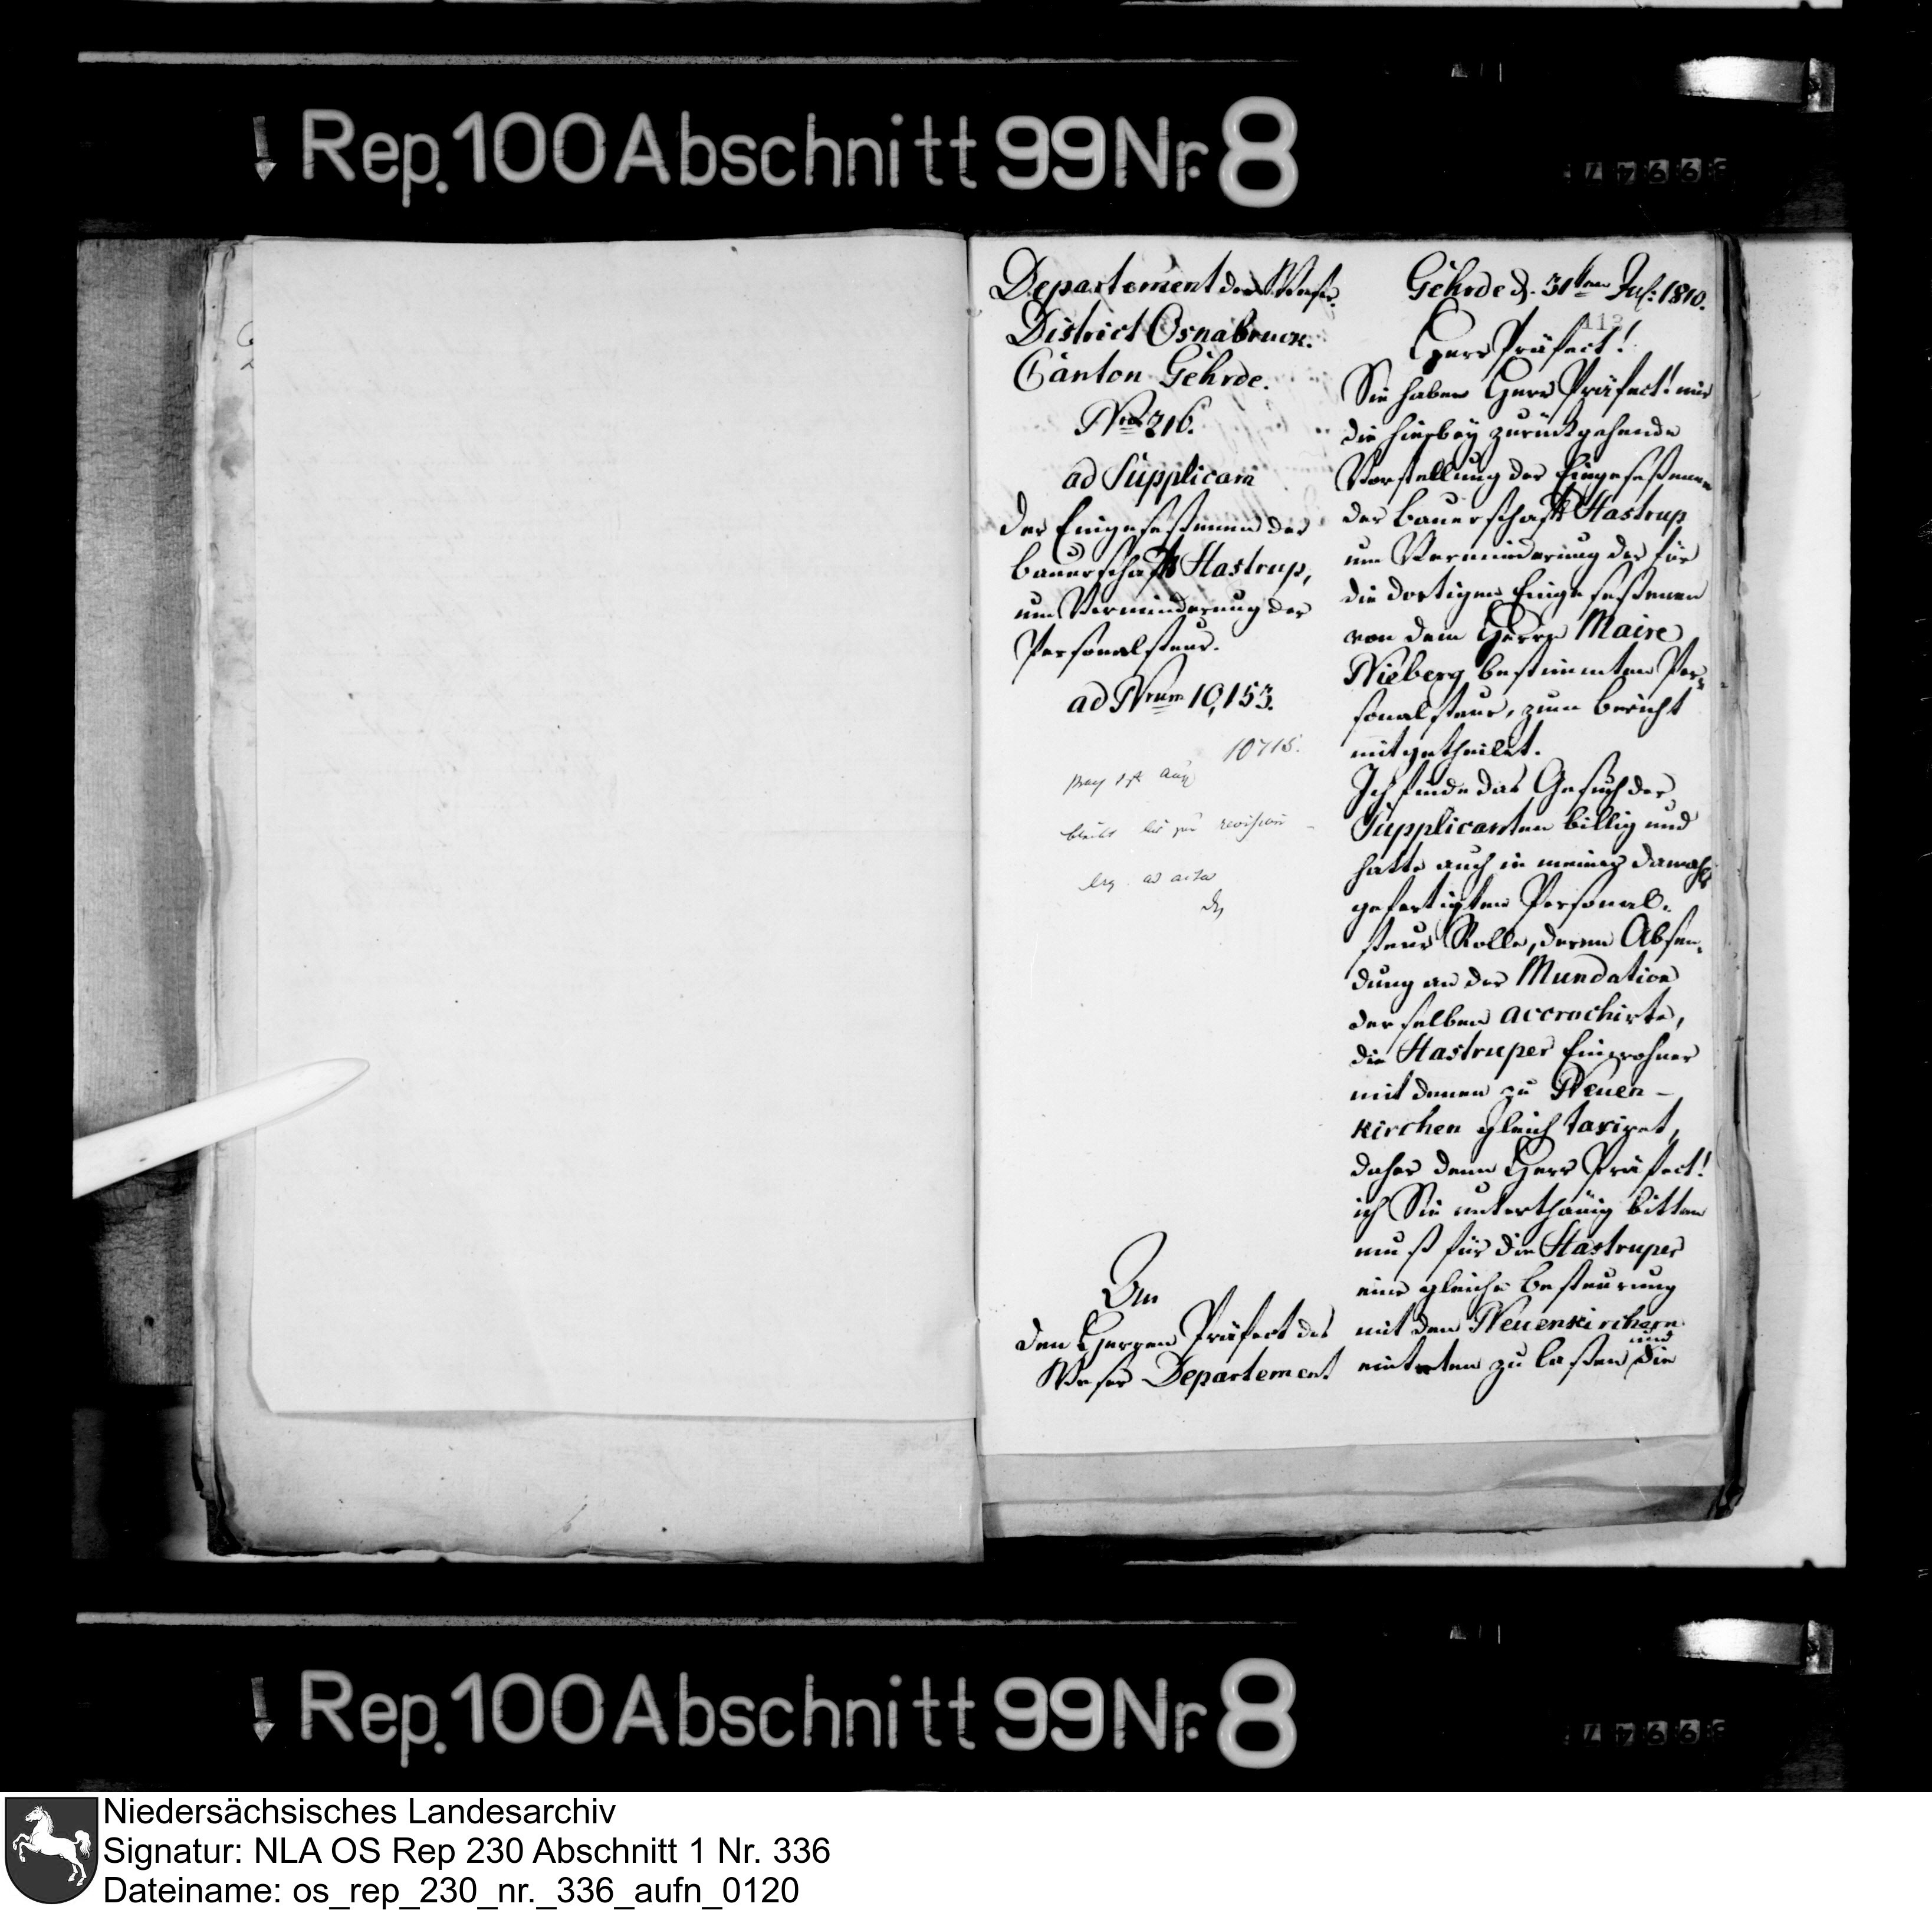 Rep. 100 Abschnitt 99 Nr. 8
Departement der Weser.
District Osnabruck.
Canton Gehrde.
Nro 216.
ad Supplicam
der Eingeseßenen der
Bauerschaft Hastrup,
um Verminderung der
Personalsteur.
ad Nrum 10,153.
10715.
bleibt bis zur revision
ad acta
An
den Herren Präfect des
Weser Departement
Gehrde d. 31ten Jul: 1810.
113
Herr Präfect!
Sie haben Herr Präfect! mir
die hierbey zurückgehende
Vorstellung der Eingeseßenen
der Bauerschaft Hastrup
um Verminderung der für
die dortigen Eingeseßenen
von dem Herrn Maire
Nieberg bestimmten Per-
sonalsteur, zum Bericht
mitgetheilet.
Ich finde das Gesuch der
Supplicanten billig und
hatte auch in meiner damahls
gefertigten Personal-
steur Rolle, deren Absen-
dung an der Mundation
derselben accrochirte,
die Hastruper Einwohner
mit denen zu Neuen-
kirchen gleich taxiret,
daher denn Herr Präfect!
ich Sie unterthänig bitten
muß für die Hastruper
eine gleiche Besteurung
mit den Neuenkirchern
eintreten zu laßen und die
Rep. 100 Abschnitt 99 Nr. 8
Niedersächsisches Landesarchiv
Signatur: NLA OS Rep 230 Abschnitt 1 Nr. 336
Dateiname: os_rep_230_nr._336_aufn_0120